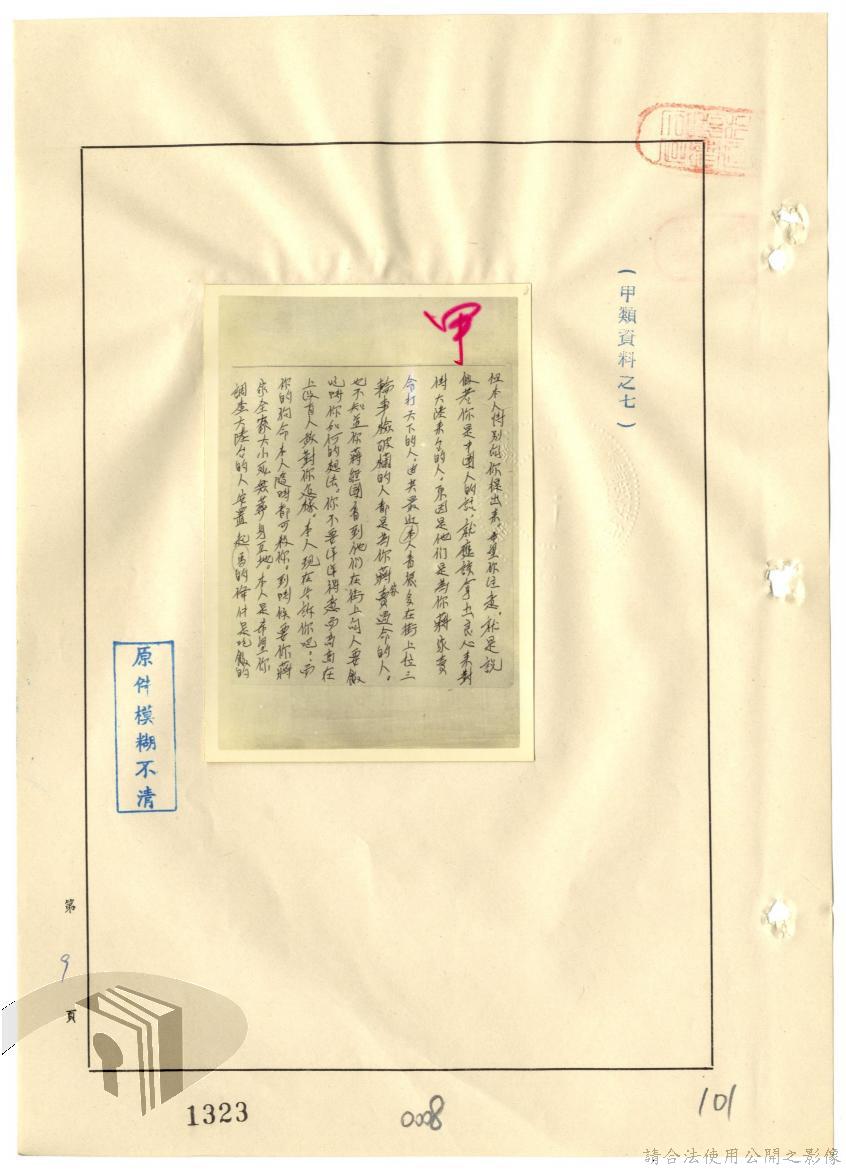 (甲類資料之七)
甲
但本人特別向你提出来,希望你注意,就是說
假若你是中國人的話,就應該拿出良心来對
待大陸来台的人,原因是他們是為你蔣家賣
命打天下的人,由其最近本人看很多在街上拉三
輪車撿破爛的人都是為你蔣家賣過命的人。
也不知道你蔣經國看到他們在街上向人要飯
吃時你如何的想法,你不要洋洋得意而高高在
上没有人敢對你這樣。本人現在告訴你吧,而
你的狗命本人随時都可殺你,到時候要你蔣
家全家大小死無葬身互地。本人是希望你
調查大陸台的人安置起
的條件是吃飯的
原件模糊不清
第9頁
1323
0008
101
請合法使用公開之影像